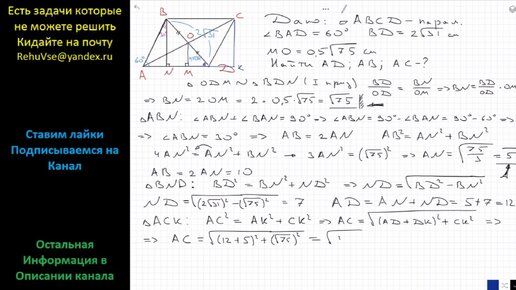 Есть задачи которые
не можете решить
Кидайте на почту
RehuVse@yandex.ru
Ставим лайки
Подписываемся на
Канал
Остальная
Информация в
Описании канала
B
C
2√31
O
60°
A N M D K
Дано: ABCD - парал.
∠BAD = 60° BD = 2√31 см
MO = 0,5√75 см
Найти AD; AB; AC - ?
△ ODM ~ △ BDN (I приз) BD/OD = BN/OM ⇒ BN = BD/OD · OM
⇒ BN = 2OM = 2 · 0,5√75 = √75
△ABN: ∠ABN + ∠BAN = 90° ⇒ ∠ABN = 90° - ∠BAN = 90° - 60° ⇒
⇒ ∠ABN = 30° ⇒ AB = 2AN AB² = AN² + BN²
4AN² = AN² + BN² → 3AN² = (√75)² ⇒ AN = √75/3 = 5
AB = 2AN = 10
△BND: BD² = BN² + ND² ⇒ ND = √BD² - BN²
ND = √(2√31)² - (√75)² = 7 AD = AN + ND = 5 + 7 = 12
△ACK: AC² = AK² + CK² ⇒ AC = √(AD + DK)² + CK² ⇒
⇒ AC = √(12 + 5)² + (√75)² = √